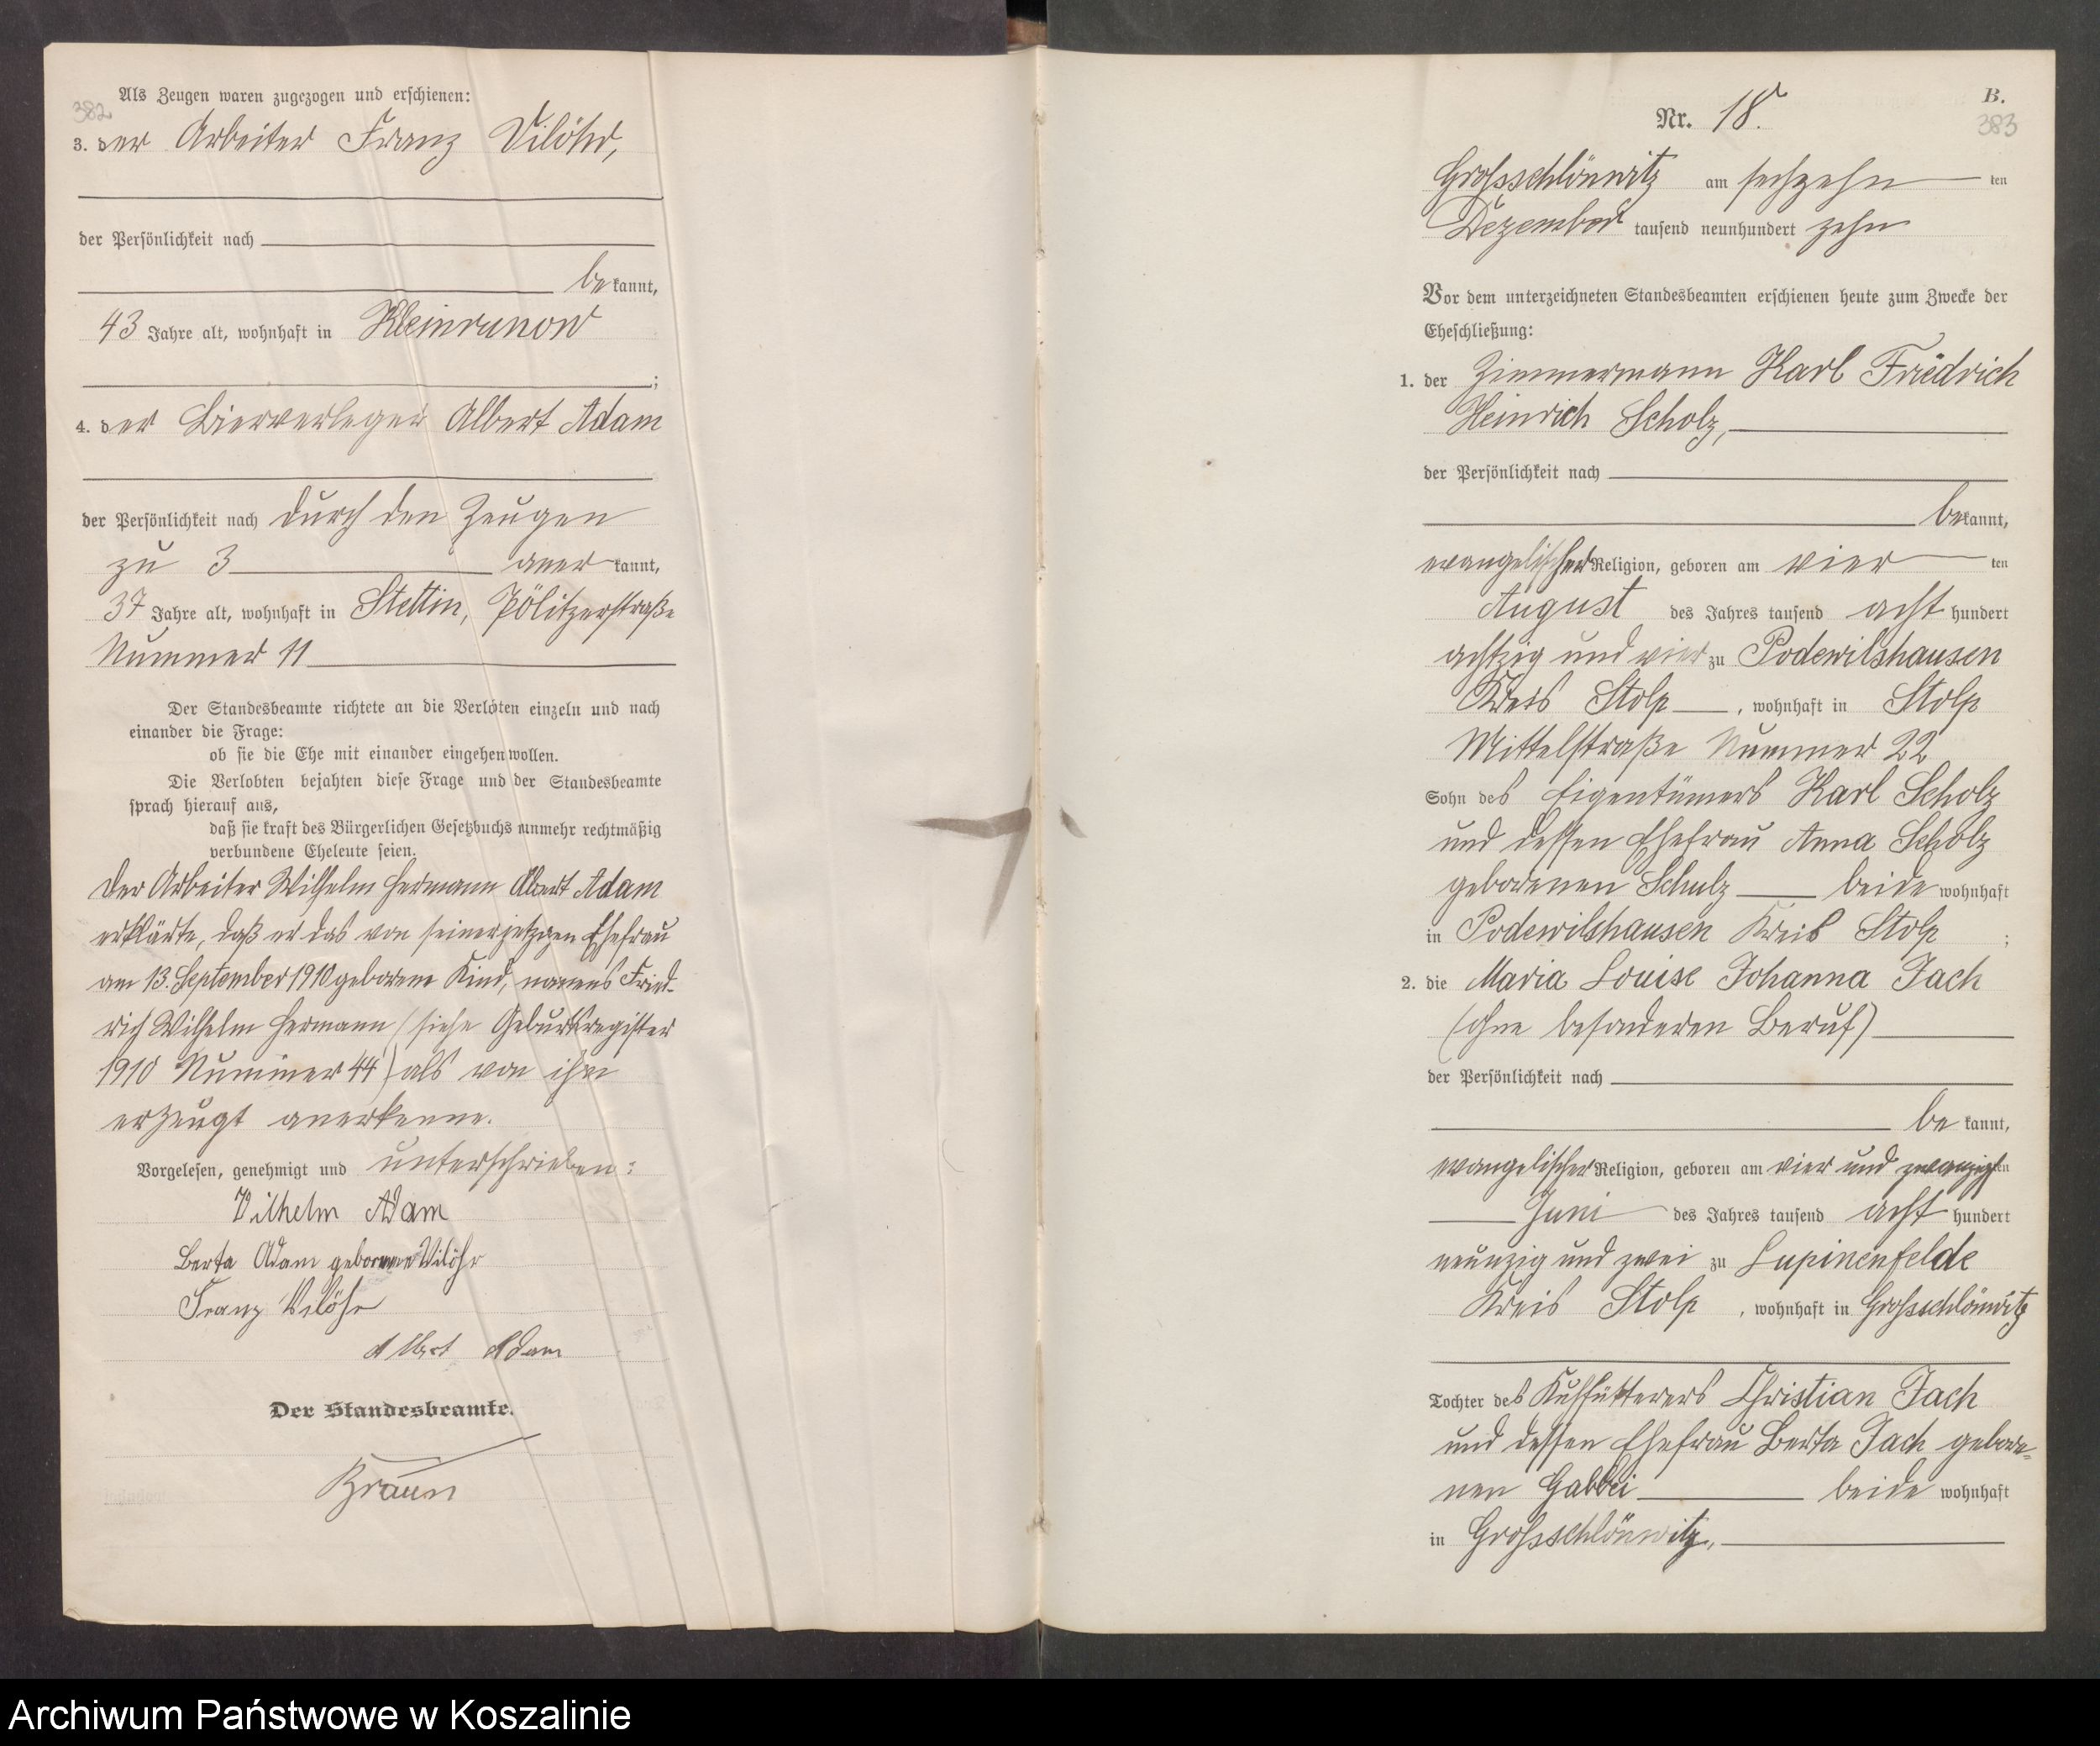 382
Als Zeugen waren zugezogen und erschienen:
3. der Arbeiter Franz Vilöhr,
der Persönlichkeit nach
bekannt,
43 Jahre alt, wohnhaft in Kleinrunow
;
4. der Bierverleger Albert Adam
der Persönlichkeit nach durch den Zeugen
zu 3 anerkannt,
37 Jahre alt, wohnhaft in Stettin, Pölitzerstraße
Nummer 11
Der Standesbeamte richtete an die Verlobten einzeln und nach
einander die Frage:
ob sie die Ehe mit einander eingehen wollen.
Die Verlobten bejahten diese Frage und der Standesbeamte
sprach hierauf aus,
daß sie kraft des Bürgerlichen Gesetzbuchs nunmehr rechtmäßig
verbundene Eheleute seien.
Der Arbeiter Wilhelm Hermann Albert Adam
erklärte, daß er das von seiner jetzigen Ehefrau
am 13. September 1910 geborene Kind, namens Fried-
rich Wilhelm Hermann (siehe Geburtsregister
1910 Nummer 44) als von ihm
erzeugt anerkenne.
Vorgelesen, genehmigt und unterschrieben:
Wilhelm Adam
Berta Adam geborene Vilöhr
Franz Vilöhr
Albert Adam
Der Standesbeamte.
Braun
B.
383
Nr. 18.
Grossschlönwitz am sechzehn ten
Dezember tausend neunhundert zehn
Vor dem unterzeichneten Standesbeamten erschienen heute zum Zwecke der
Eheschließung:
1. der Zimmermann Karl Friedrich
Heinrich Scholz,
der Persönlichkeit nach
bekannt,
evangelischer Religion, geboren am vier ten
August des Jahres tausend acht hundert
achtzig und vier zu Podewilshausen
Kreis Stolp, wohnhaft in Stolp
Mittelstraße Nummer 22
Sohn des Eigentümers Karl Scholz
und dessen Ehefrau Anna Scholz
geborenen Schulz beide wohnhaft
in Podewilshausen Kreis Stolp ;
2. die Maria Louise Johanna Jach
(ohne besonderen Beruf)
der Persönlichkeit nach
bekannt,
evangelischer Religion, geboren am vier und zwanzigsten
Juni des Jahres tausend acht hundert
neunzig und zwei zu Lupinenfelde
Kreis Stolp, wohnhaft in Grossschlönwitz
Tochter des Kuhfütterers Christian Jach
und dessen Ehefrau Berta Jach gebore-
nen Gabbei beide wohnhaft
in Grossschlönwitz.
Archiwum Państwowe w Koszalinie